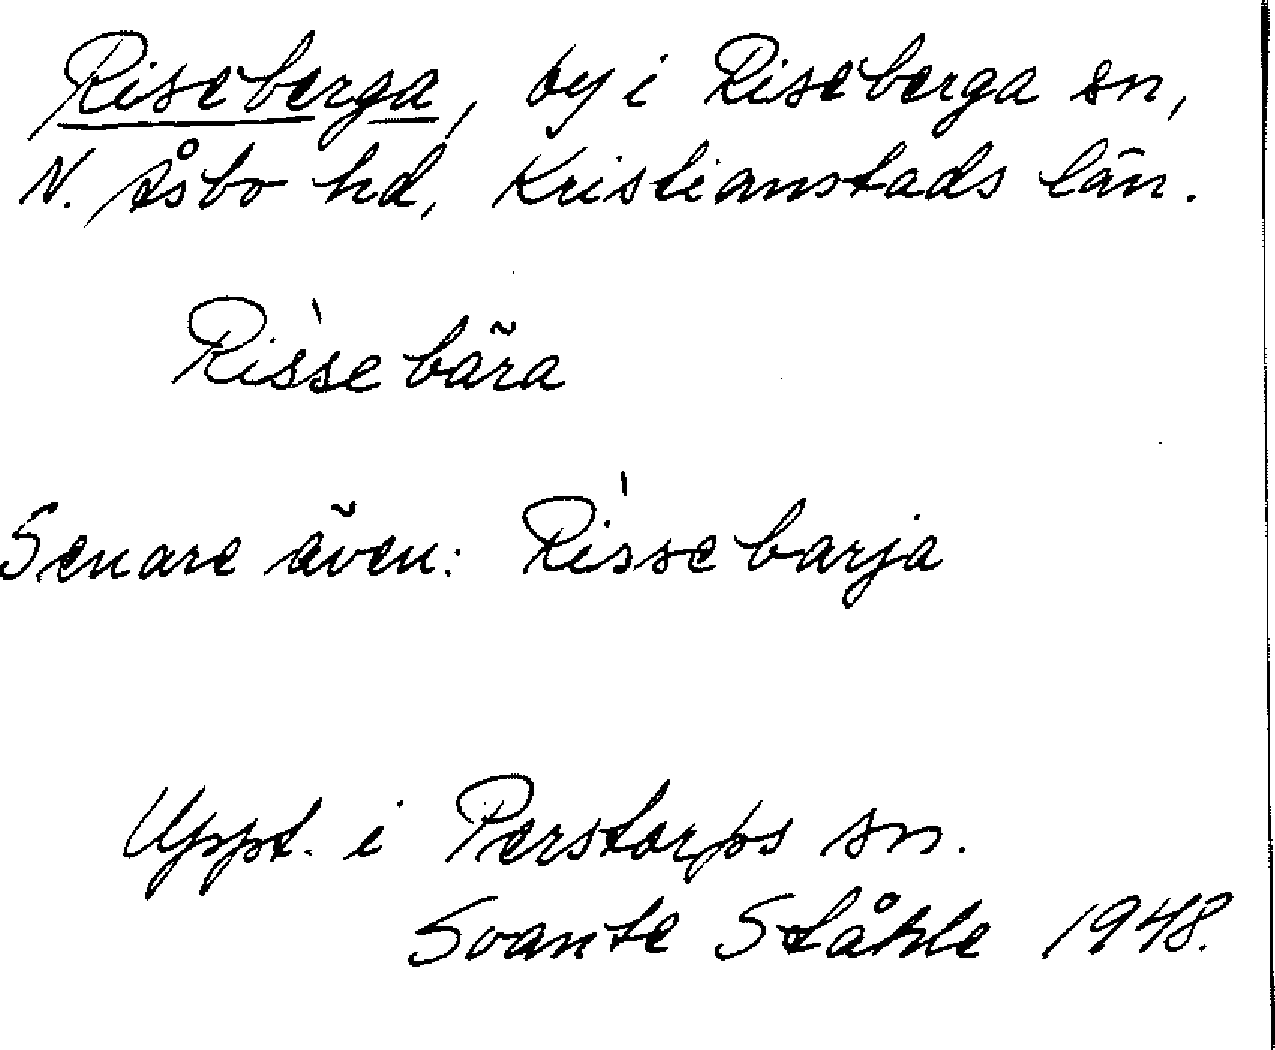 Riseberga, by i Riseberga sn,
N. Åsbo hd, Kristianstads län.
Rìssebära
Senare även: Rìssebarja
Uppt. i Perstorps sn.
Svante Ståhle 1948.